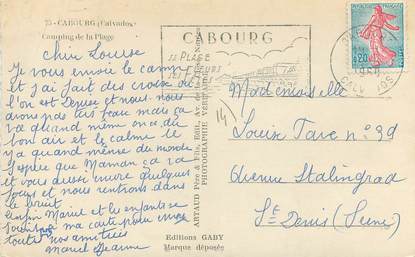 75 - CABOURG (Calvados)
Camping de la Plage
Chère Louise
Je vous envoie le camp
et j'ai fait des croix où
l'on est Denise et nous. nous
avons pas très beau mais ça
va quand même on a du
bon air et le calme il
y a quand même du monde
J'espère que Maman ça va
et vous aussi encore quelques
jours et nous rentrons dans
le bruit
enfin Marcel et les enfants se
joignent ma carte pour vous
toutes nos amitiées
Marcel Jeanne
CABOURG
SA PLAGE
SES FLEURS
Mademoiselle
Louise n° 39
Avenue Stalingrad
St Denis (Seine)
ARTAUD Père & Fils, Édit.
PHOTOGRAPHIE VÉRITABLE
Editions GABY
Marque déposée
0,20